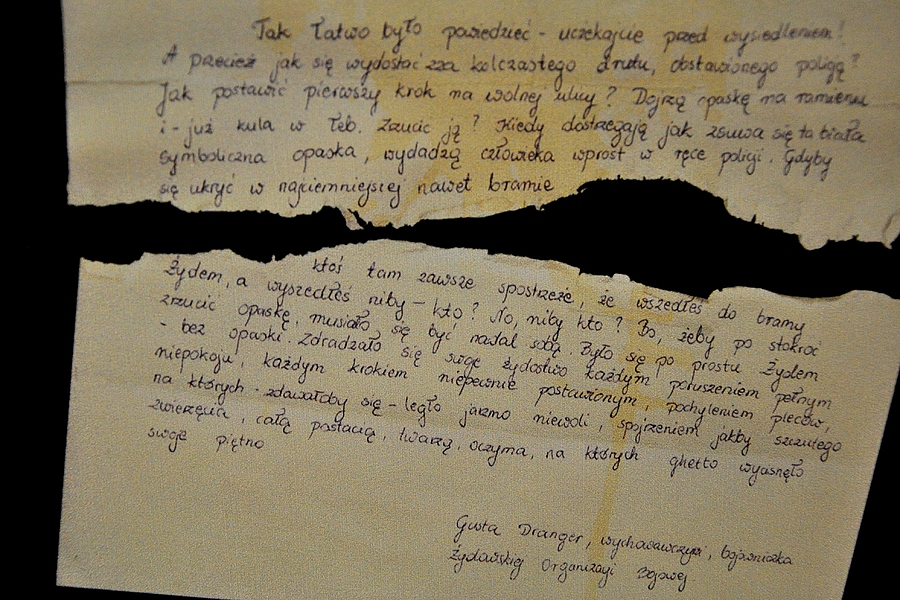 Tak łatwo było powiedzieć - uciekajcie przed wysiedleniem!
A przecież jak się wydostać zza kolczastego drutu, obstawionego policją?
Jak postawić pierwszy krok na wolnej ulicy? Dojrzą opaskę na ramieniu
i - już kula w łeb. Zrzucić ją? Kiedy dostrzegają jak zsuwa się ta biała
symboliczna opaska, wydadzą człowieka wprost w ręce policji. Gdyby
się ukryć w najciemniejszej nawet bramie
ktoś tam zawsze spostrzeże, że wszedłeś do bramy
Żydem, a wyszedłeś niby - kto? No, niby kto? Bo, żeby po stokroć
zrzucić opaskę, musiało się być nadal sobą. Było się po prostu Żydem
- bez opaski. Zdradzało się swoje żydostwo każdym poruszeniem pełnym
niepokoju, każdym krokiem niepewnie postawionym, pochyleniem pleców,
na których - zdawałoby się - legło jarzmo niewoli, spojrzeniem jakby szczutego
zwierzęcia, całą postacią, twarzą, oczyma, na których ghetto wycisnęło
swoje piętno
Gusta Dranger, wychowawczyni, bojowniczka
Żydowskiej Organizacji Bojowej